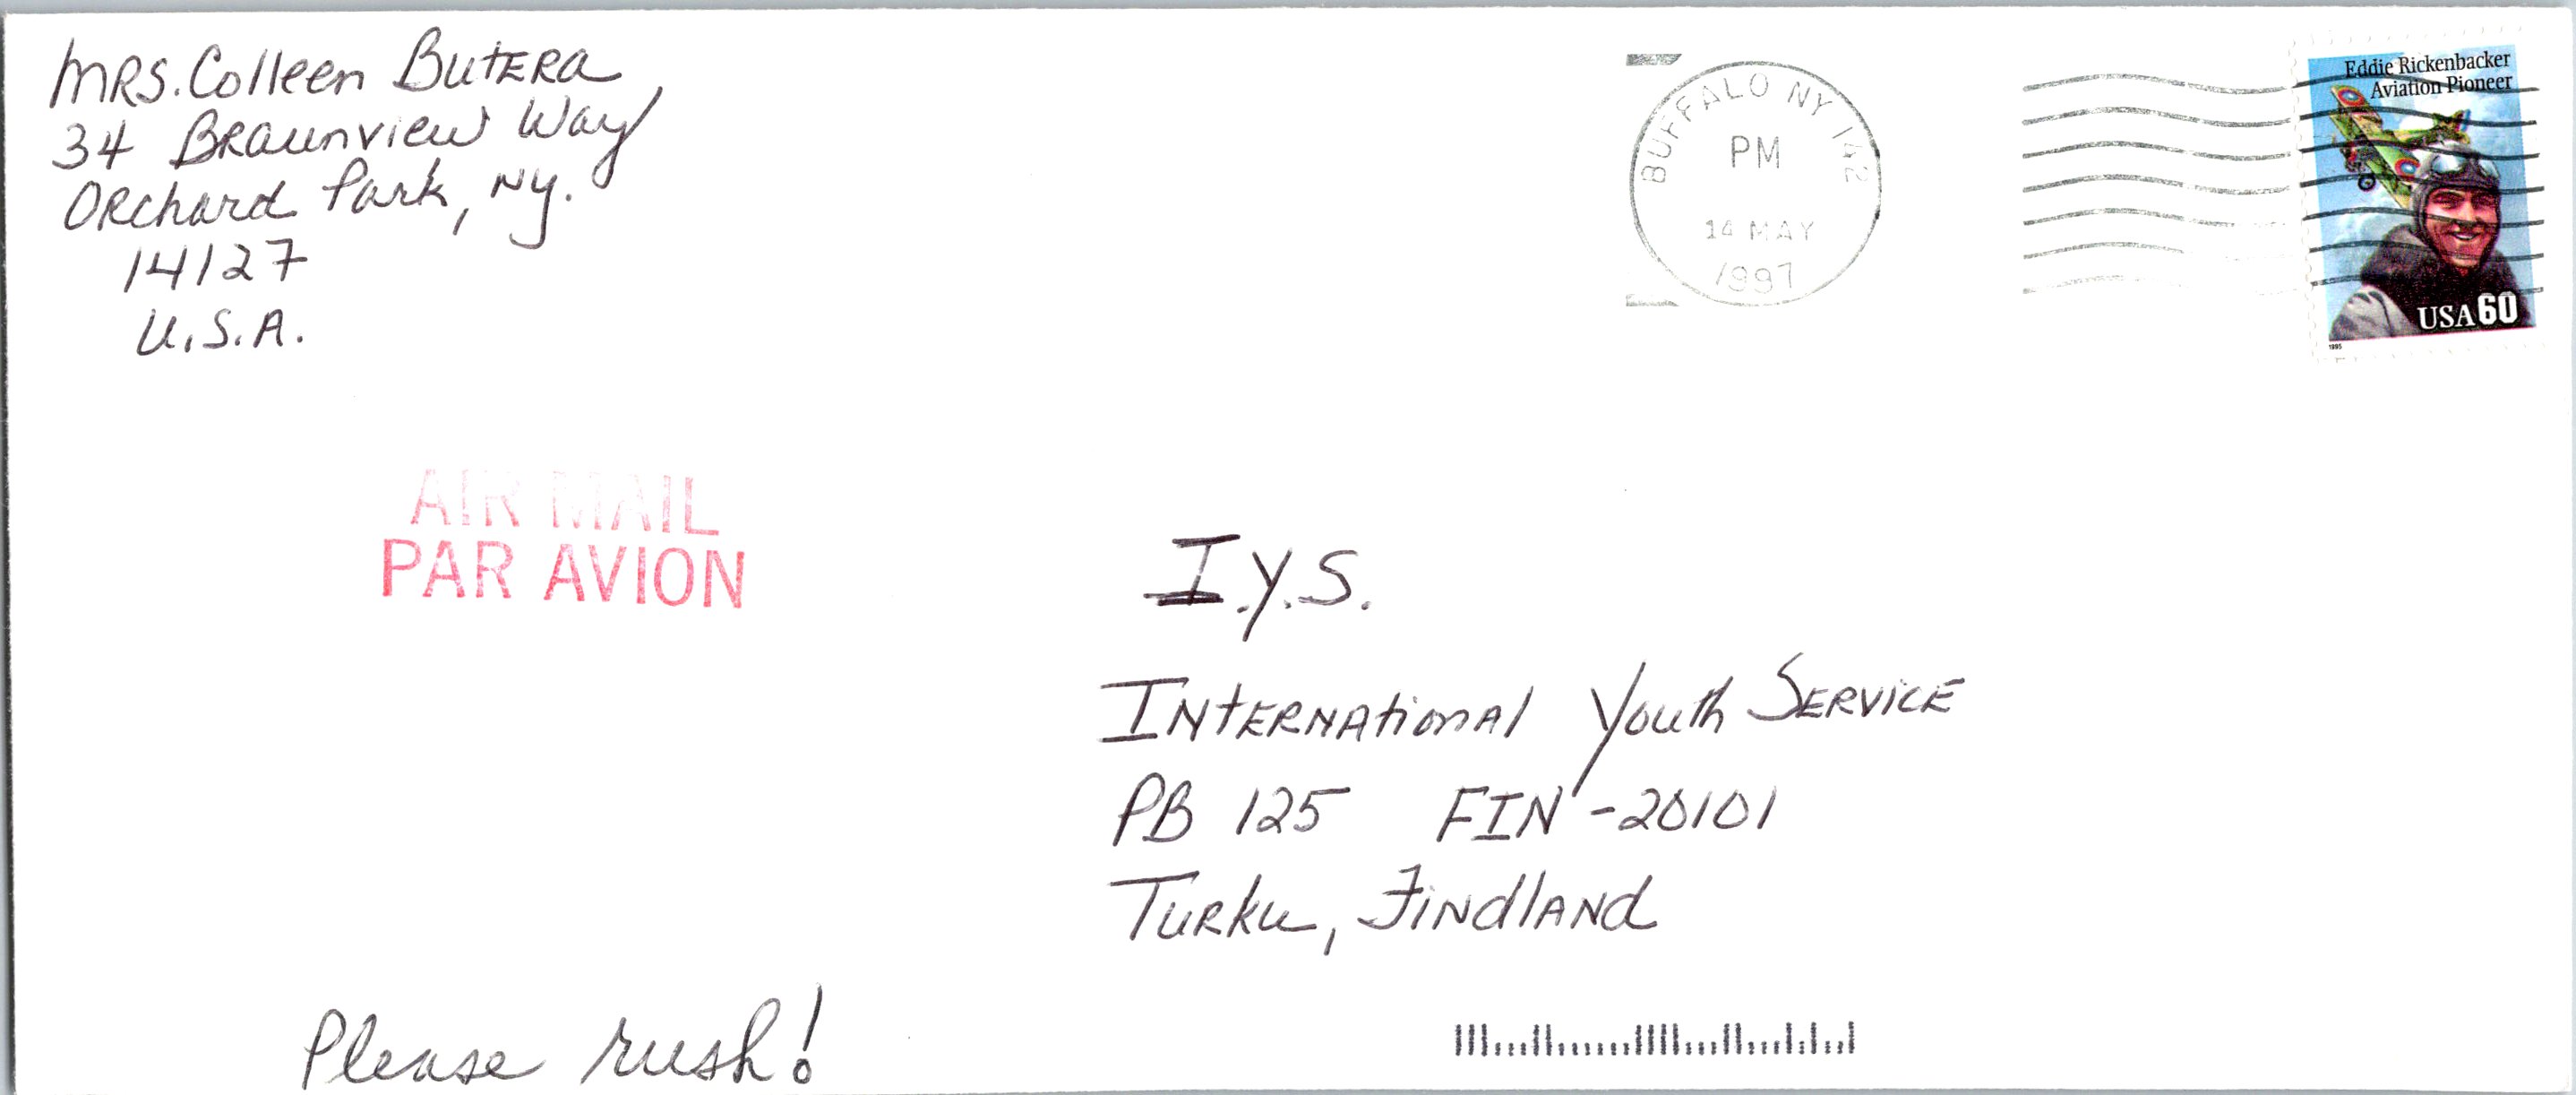 MRS. Colleen Butera
34 Braunview Way
Orchard Park, NY.
14127
U.S.A.
BUFFALO NY 142
PM
14 MAY
1997
Eddie Rickenbacker
Aviation Pioneer
USA 60
1995
AIR MAIL
PAR AVION
I.Y.S.
International Youth Service
PB 125 FIN-20101
Turku, Findland
Please rush!